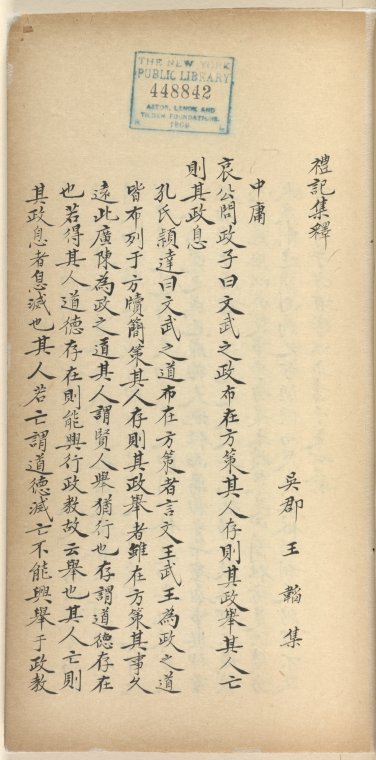 THE NEW YORK
PUBLIC LIBRARY
448842
ASTOR, LENOX AND
TILDEN FOUNDATIONS.
1909
禮記集釋
吳郡王韜集
中庸
哀公問政子曰文武之政布在方策其人存則其政舉其人亡
則其政息
孔氏穎達曰文武之道布在方策者言文王武王為政之道
皆布列于方牘簡策其人存則其政舉者雖在方策其事久
遠此廣陳為政之道其人謂賢人舉猶行也存謂道德存在
也若得其人道德存在則能興行政教故云舉也其人亡則
其政息者息滅也其人若亡謂道德滅亡不能興舉于政教